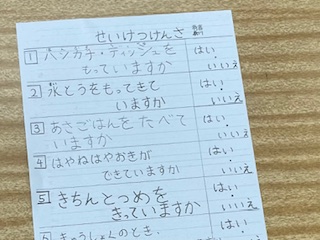 せいけつけんさ
1 ハンカチ・ティッシュを はい
もっていますか いいえ
2 水とうをもってきて はい
いますか いいえ
3 あさごはんをたべて はい
いますか いいえ
4 はやねはやおきが はい
できていますか いいえ
5 きちんとつめを はい
きっていますか いいえ
きゅうしょくのとき、 はい